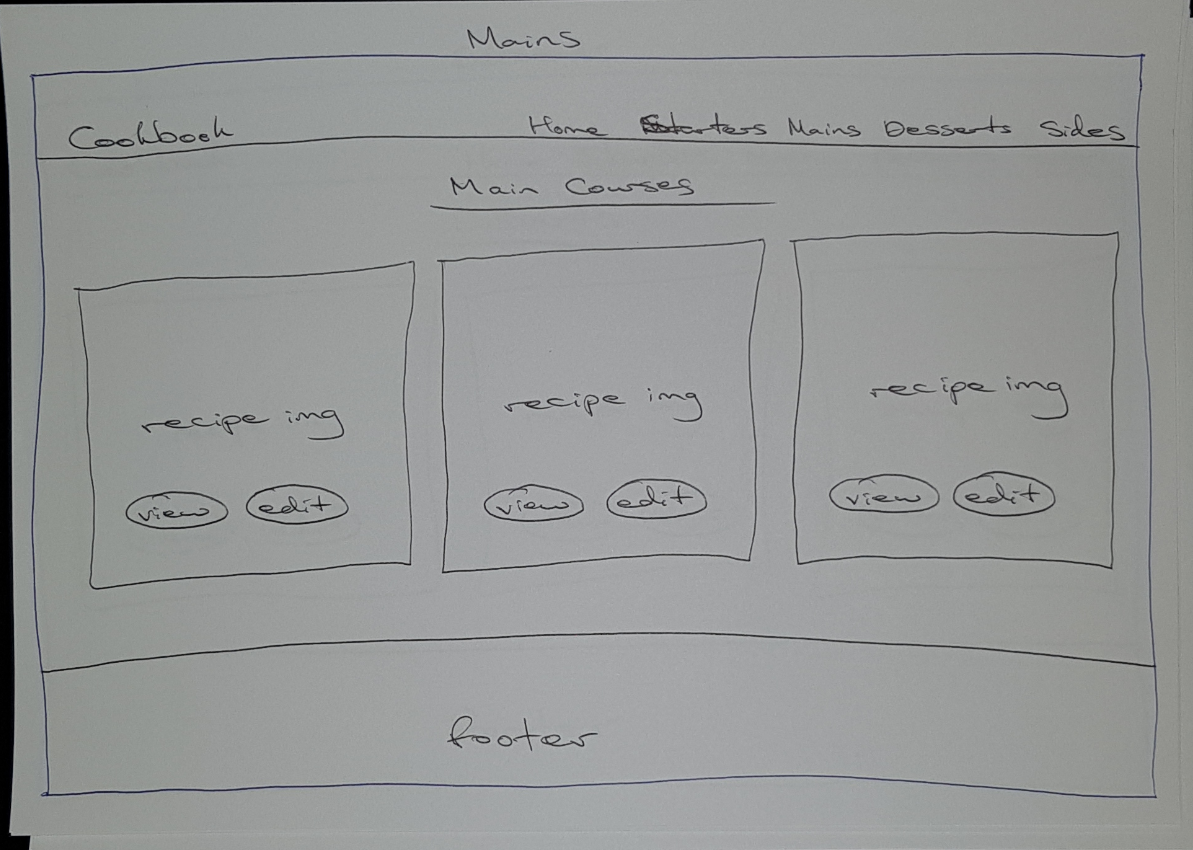 Mains
Cookbook Home Starters Mains Desserts Sides
Main Courses
recipe img recipe img recipe img
view edit view edit view edit
footer